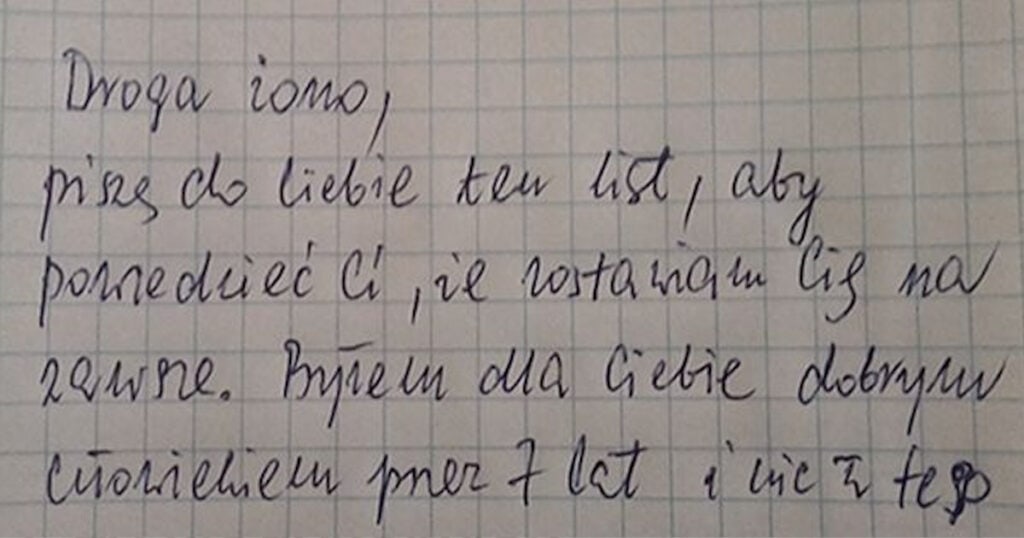 Droga żono,
piszę do Ciebie ten list, aby
powiedzieć Ci, że zostawiam Cię na
zawsze. Byłem dla Ciebie dobrym
człowiekiem przez 7 lat i nic z tego